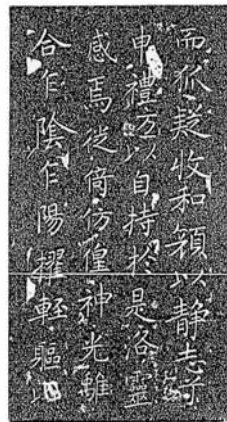 而狐疑收和顔以静志兮
申禮防以自持於是洛靈
感焉徙倚仿偟神光離
合乍陰乍陽擢軽軀以